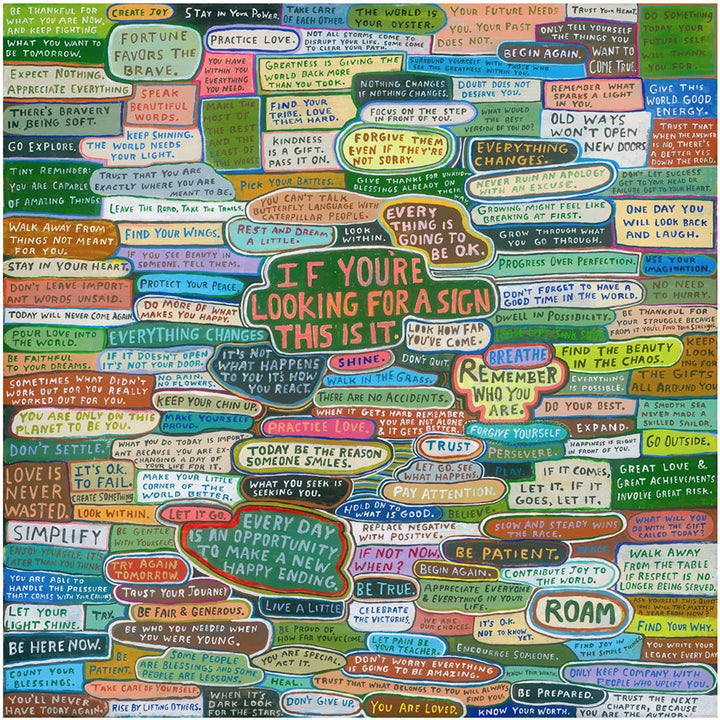 BE THANKFUL FOR
WHAT YOU ARE NOW,
AND KEEP FIGHTING
WHAT YOU WANT TO
BE TOMORROW.
CREATE JOY
STAY IN YOUR POWER.
TAKE CARE
OF EACH OTHER.
THE WORLD IS
YOUR OYSTER.
YOUR FUTURE NEEDS
YOU. YOUR PAST
DOES NOT.
TRUST YOUR HEART.
DO SOMETHING
TODAY YOUR
FUTURE SELF
WILL THANK
YOU FOR.
FORTUNE
FAVORS THE
BRAVE.
PRACTICE LOVE.
NOT ALL STORMS COME TO
DISRUPT YOUR LIFE. SOME COME
TO CLEAR YOUR PATH.
ONLY TELL YOURSELF
THE THINGS YOU
WANT TO
COME TRUE.
BEGIN AGAIN.
EXPECT NOTHING.
APPRECIATE EVERYTHING
YOU HAVE
WITHIN YOU
EVERYTHING
YOU NEED.
GREATNESS IS GIVING THE
WORLD BACK MORE
THAN YOU TOOK.
SURROUND YOURSELF WITH THOSE WHO
SEE THE GREATNESS WITHIN YOU.
SPEAK
BEAUTIFUL
WORDS.
NOTHING CHANGES
IF NOTHING CHANGES.
DOUBT DOES NOT
DESERVE YOU.
REMEMBER WHAT
SPARKS A LIGHT
IN YOU.
GIVE THIS
WORLD GOOD
ENERGY.
THERE'S BRAVERY
IN BEING SOFT.
MAKE THE
MOST OF
THE BEST
AND THE
LEAST OF
THE WORST
FIND YOUR
TRIBE. LOVE
THEM HARD.
FOCUS ON THE STEP
IN FRONT OF YOU.
WHAT WOULD
THE BEST
VERSION OF YOU DO?
OLD WAYS
WON'T OPEN
NEW DOORS.
TRUST THAT
WHEN THE ANSWER
IS NO, THERE'S
A BETTER YES
DOWN THE ROAD.
GO EXPLORE.
KEEP SHINING.
THE WORLD NEEDS
YOUR LIGHT.
KINDNESS
IS A GIFT.
PASS IT ON.
FORGIVE THEM
EVEN IF THEY'RE
NOT SORRY.
EVERYTHING
CHANGES.
TINY REMINDER:
YOU ARE CAPABLE
OF AMAZING THINGS
TRUST THAT YOU ARE
EXACTLY WHERE YOU ARE
MEANT TO BE.
PICK YOUR BATTLES.
GIVE THANKS FOR UNKNOWN
BLESSINGS ALREADY ON
THEIR WAY.
NEVER RUIN AN APOLOGY
WITH AN EXCUSE.
DON'T LET SUCCESS
GET TO YOUR HEAD OR
FAILURE GET TO YOUR HEART.
LEAVE THE ROAD, TAKE THE TRAILS.
YOU CAN'T TALK
BUTTERFLY LANGUAGE WITH
CATERPILLAR PEOPLE.
EVERY
THING IS
GOING TO
BE O.K.
GROWING MIGHT FEEL LIKE
BREAKING AT FIRST.
ONE DAY YOU
WILL LOOK BACK
AND LAUGH.
WALK AWAY FROM
THINGS NOT MEANT
FOR YOU.
FIND YOUR WINGS.
REST AND DREAM
A LITTLE.
LOOK
WITHIN.
GROW THROUGH WHAT
YOU GO THROUGH.
STAY IN YOUR HEART.
IF YOU SEE BEAUTY IN
SOMEONE, TELL THEM.
IF YOU'RE
LOOKING FOR A SIGN
THIS IS IT.
PROGRESS OVER PERFECTION.
USE YOUR
IMAGINATION.
DON'T LEAVE IMPORT-
ANT WORDS UNSAID.
PROTECT YOUR PEACE.
DON'T FORGET TO HAVE A
GOOD TIME IN THE WORLD.
NO NEED
TO HURRY.
TODAY WILL NEVER COME AGAIN
DO MORE OF WHAT
MAKES YOU HAPPY.
DWELL IN POSSIBILITY.
BE THANKFUL FOR
YOUR STRUGGLE BECAUSE
FROM IT YOU'LL FIND YOUR STRENGTH.
POUR LOVE ON
THE WORLD.
EVERYTHING CHANGES
LOOK HOW FAR
YOU'VE COME.
BE FAITHFUL
TO YOUR DREAMS.
IF IT DOESN'T OPEN
IT'S NOT YOUR DOOR.
IT'S NOT
WHAT HAPPENS
TO YOU IT'S HOW
YOU REACT.
SHINE.
DON'T QUIT.
BREATHE
FIND THE BEAUTY
IN THE CHAOS.
KEEP
LOOKING
FOR
THE GIFTS
ALL AROUND YOU
SOMETIMES WHAT DIDN'T
WORK OUT FOR YOU REALLY
WORKED OUT FOR YOU.
NO FLOWERS.
WALK IN THE GRASS.
REMEMBER
WHO YOU
ARE.
EVERYTHING
IS POSSIBLE.
KEEP YOUR CHIN UP.
THERE ARE NO ACCIDENTS.
DO YOUR BEST.
A SMOOTH SEA
NEVER MADE A
SKILLED SAILOR.
YOU ARE ONLY ON THIS
PLANET TO BE YOU.
MAKE YOURSELF
PROUD.
PRACTICE LOVE.
WHEN IT GETS HARD REMEMBER
YOU ARE NOT ALONE
& IT GETS BETTER.
FORGIVE YOURSELF
EXPAND.
DON'T SETTLE.
WHAT YOU DO TODAY IS IMPORT-
ANT BECAUSE YOU ARE EX-
CHANGING A DAY OF
YOUR LIFE FOR IT.
TODAY BE THE REASON
SOMEONE SMILES.
TRUST
PERSEVERE.
HAPPINESS IS RIGHT
IN FRONT OF YOU.
GO OUTSIDE.
LOVE IS
NEVER
WASTED.
IT'S O.K.
TO FAIL.
CREATE SOMETHING
MAKE YOUR LITTLE
CORNER OF THE
WORLD BETTER.
WHAT YOU SEEK IS
SEEKING YOU.
LET GO. SEE
WHAT HAPPENS.
PLAY.
IF IT COMES,
LET IT. IF IT
GOES, LET IT.
GREAT LOVE &
GREAT ACHIEVEMENTS
INVOLVE GREAT RISK.
PAY ATTENTION.
LOOK WITHIN.
LET IT GO.
HOLD ON TO
WHAT IS GOOD.
BELIEVE.
SIMPLIFY
BE GENTLE
WITH YOURSELF.
EVERY DAY
IS AN OPPORTUNITY
TO MAKE A NEW
HAPPY ENDING.
REPLACE NEGATIVE
WITH POSITIVE.
SLOW AND STEADY WINS
THE RACE.
WHAT WILL YOU
DO WITH THE GIFT
CALLED TODAY?
ENJOY YOURSELF. IT'S
LATER THAN YOU THINK.
TRY AGAIN
TOMORROW.
IF NOT NOW,
WHEN?
BE PATIENT.
DANCE.
WALK AWAY
FROM THE TABLE
IF RESPECT IS NO
LONGER BEING SERVED.
YOU ARE ABLE TO
HANDLE THE PRESSURE
THAT COMES WITH THE CHIPS.
TRUST YOUR JOURNEY
BEGIN AGAIN.
CONTRIBUTE JOY TO
THE WORLD.
BE TRUE.
APPRECIATE EVERYONE
& EVERYTHING IN YOUR
LIFE.
ROAM
ASK YOURSELF THIS QUESTION:
WILL THIS MATTER
A YEAR FROM NOW?
LET YOUR
LIGHT SHINE.
TRY.
BE FAIR & GENEROUS.
LIVE A LITTLE
CELEBRATE
THE VICTORIES.
WE ARE
OUR CHOICES.
IT'S O.K.
NOT TO KNOW
YET.
FIND YOUR WHY.
BE HERE NOW.
BE WHO YOU NEEDED WHEN
YOU WERE YOUNG.
BE PROUD OF
HOW FAR YOU'VE COME.
LET PAIN BE
YOUR TEACHER.
ENCOURAGE SOMEONE.
FIND JOY IN
THE SIMPLE THINGS
YOU WRITE YOUR
LEGACY EVERY DAY
COUNT YOUR
BLESSINGS.
BE
PATIENT.
SOME PEOPLE
ARE BLESSINGS AND SOME
PEOPLE ARE LESSONS.
YOU ARE SPECIAL
ACT IT.
DON'T WORRY EVERYTHING
IS GOING TO BE AMAZING.
KNOW YOUR WORTH.
ONLY KEEP COMPANY WITH
PEOPLE WHO UPLIFT YOU.
TAKE CARE OF YOURSELF
HEAL.
TRUST THAT WHAT BELONGS TO YOU WILL ALWAYS
FIND YOU.
BE PREPARED.
YOU'LL NEVER
HAVE TODAY AGAIN.
RISE BY LIFTING OTHERS.
WHEN IT'S
DARK LOOK
FOR THE STARS.
DON'T GIVE UP.
YOU ARE LOVED.
KNOW YOUR WORTH.
TRUST THE NEXT
CHAPTER, BECAUSE
YOU ARE THE AUTHOR.